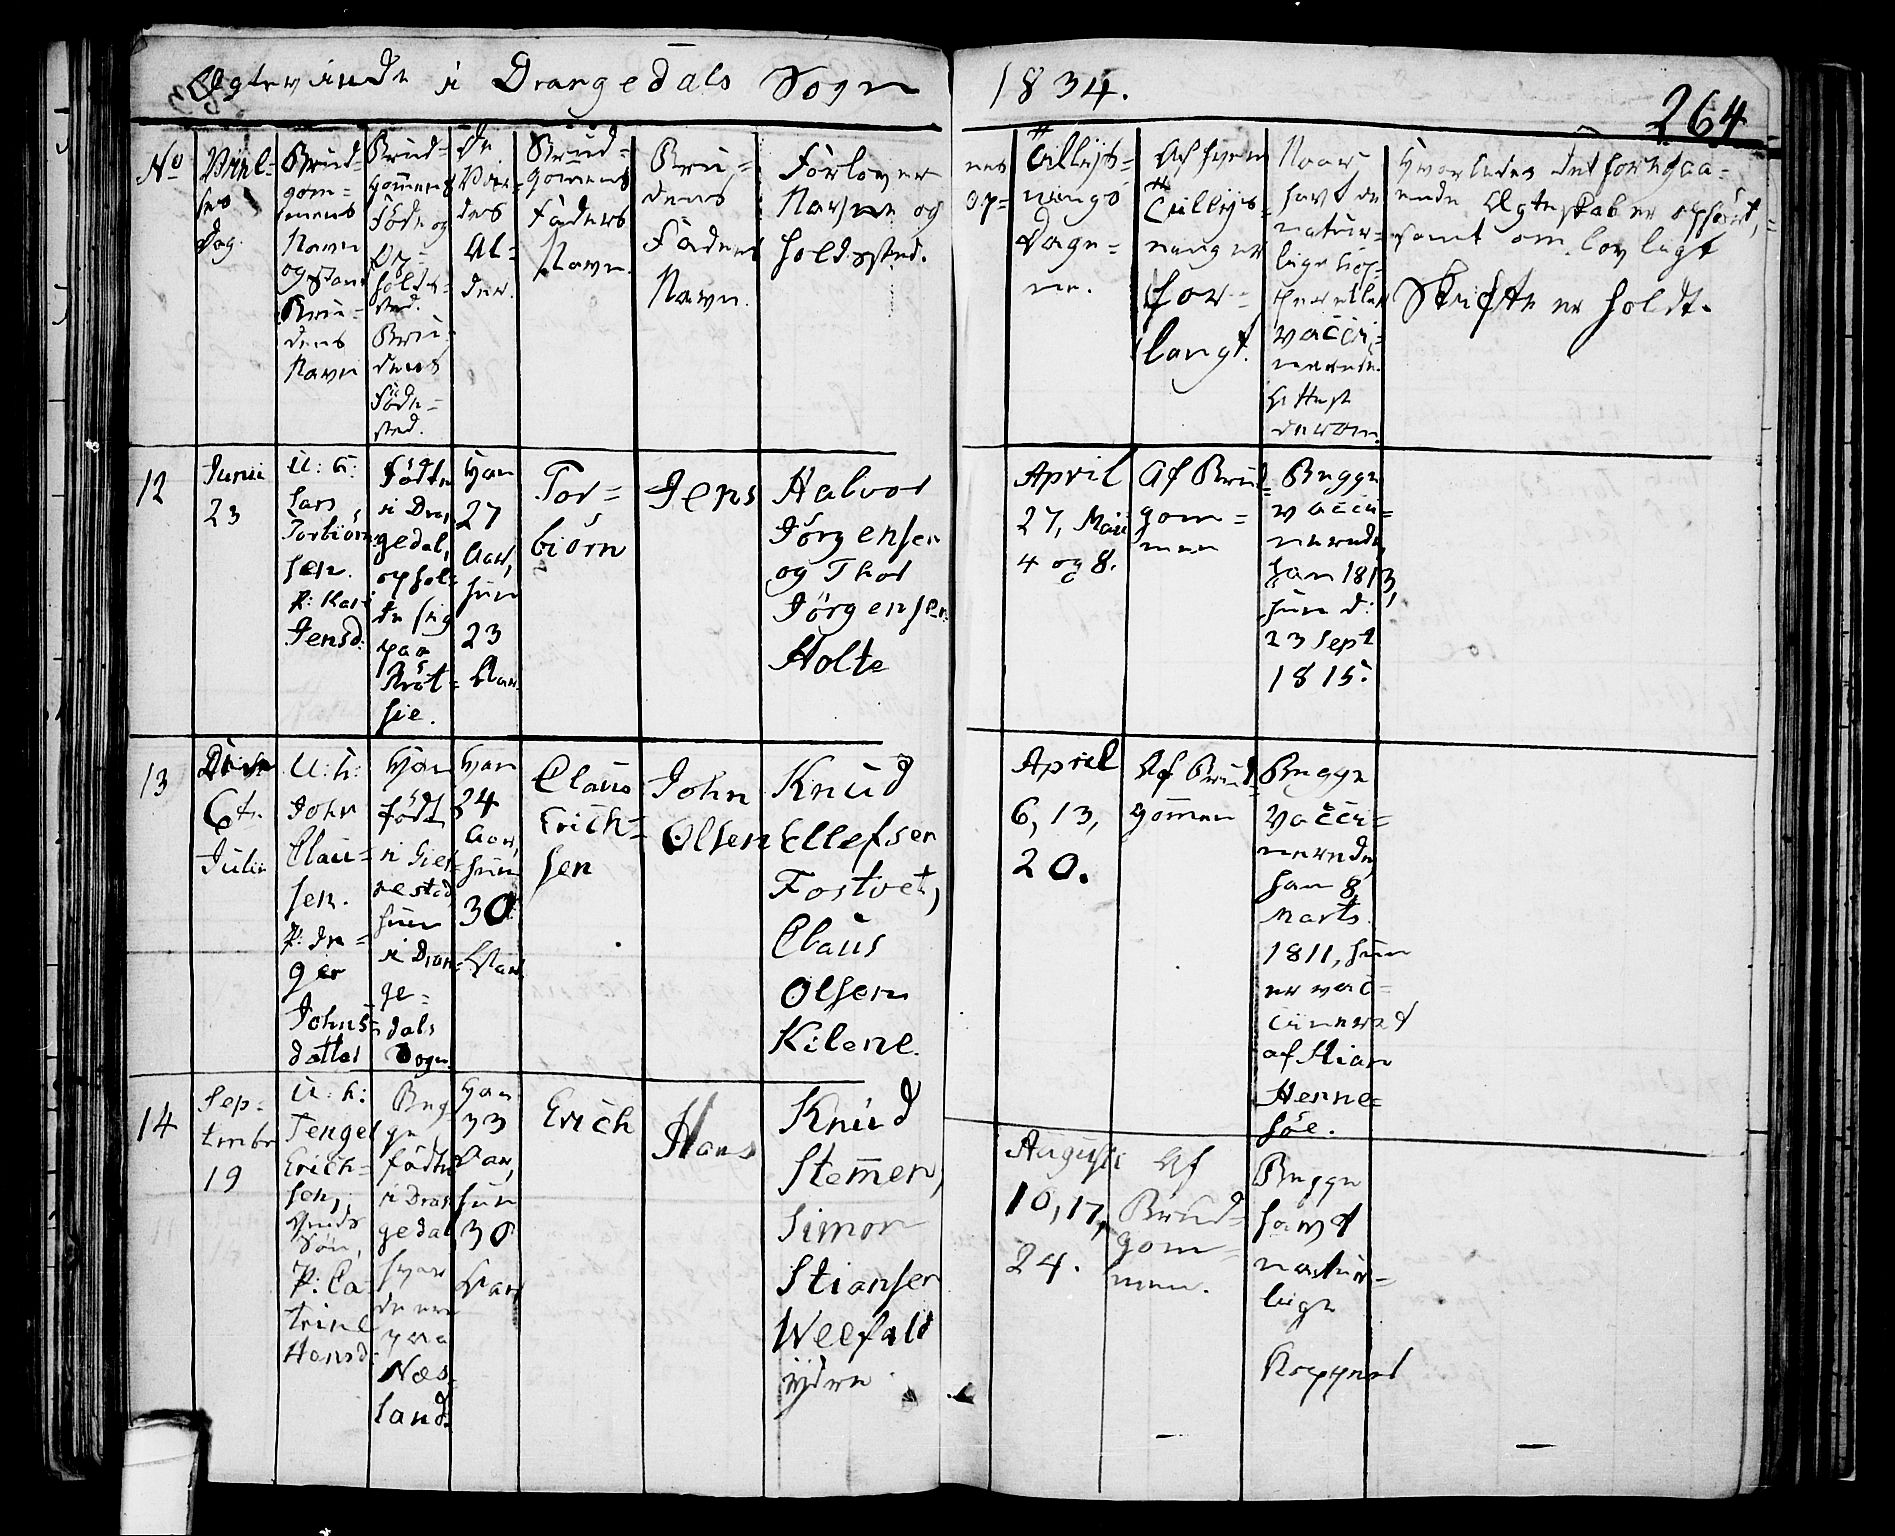 Ægteviede i Drangedals Sogn 1834.
264
No
Vielses
Dag.
Brud-
gom-
mens
Navn
og Stand
Bru-
dens
Navn
Brud-
gommens
Föde og
Op-
holds-
sted.
Bru-
dens
Föde-
sted.
De
Vor-
des
Al-
der.
Brud-
gomens
Faders
Navn.
Bru-
dens
Faders
Navn.
Forlover
Navne og
Holdssted.
Tillijs-
nings
Dage-
ne.
Af hvem
Tillijs-
ning er
for-
langt.
Naar
havt de
natur-
lige Kop-
per eller
vacci-
nerede.
Attest
derom.
Hvorledes det foregaa-
ende Ægteskab er ophört,
samt om lovligt
Skifte er holdt.
12
Junii
23
U: K:
Lars
Torbiörn-
sen.
P: Kari
Jensd:
Födte
i Dran-
gedal,
ophol-
de sig
paa
Bröt-
sie.
Han
27
Aar,
hun
23
Aar.
Tor-
biörn
Jens
Halvor
Jörgensen
og Thor
Jörgensen
Holte
April
27, Maii
4 og 8.
Af Brud-
gom-
men
Begge
vacci-
nerede,
han 1813,
hun d:
23 Sept
1815.
13
6te
Julii
U: K:
John
Clau-
sen.
P: In-
ger
Johns-
datter
Han
födt
i Gier-
restad,
hun
i Dran-
ge-
dals
Sogn
Han
24
Aar,
hun
30
Aar.
Claus
Erich-
sen
John
Olsen
Knud
Ellefsen
Fostvet,
Claus
Olsen
Kilene.
April
6, 13,
20.
Af Brud-
gommen
Begge
vacci-
nerede,
han 8
Marts
1811, hun
er vac-
cineret
af Stian
Henne-
söe.
14
Sep-
tembr
19
U: K:
Tengel
Erich-
sen,
Sön,
P: Ca-
trine
Hansd:
Beg-
ge
födte
i Dran-
gedal
hvor
de ere
paa
Næs-
land.
Han
33
Aar,
hun
30
Aar
Erich
Hans
Knud
Stemmen,
Simon
Stiansen
Weefald
ijdre
Augusti
10, 17,
24.
Af
Brud-
gom-
men.
Begge
havt
natur-
lige
Kopper